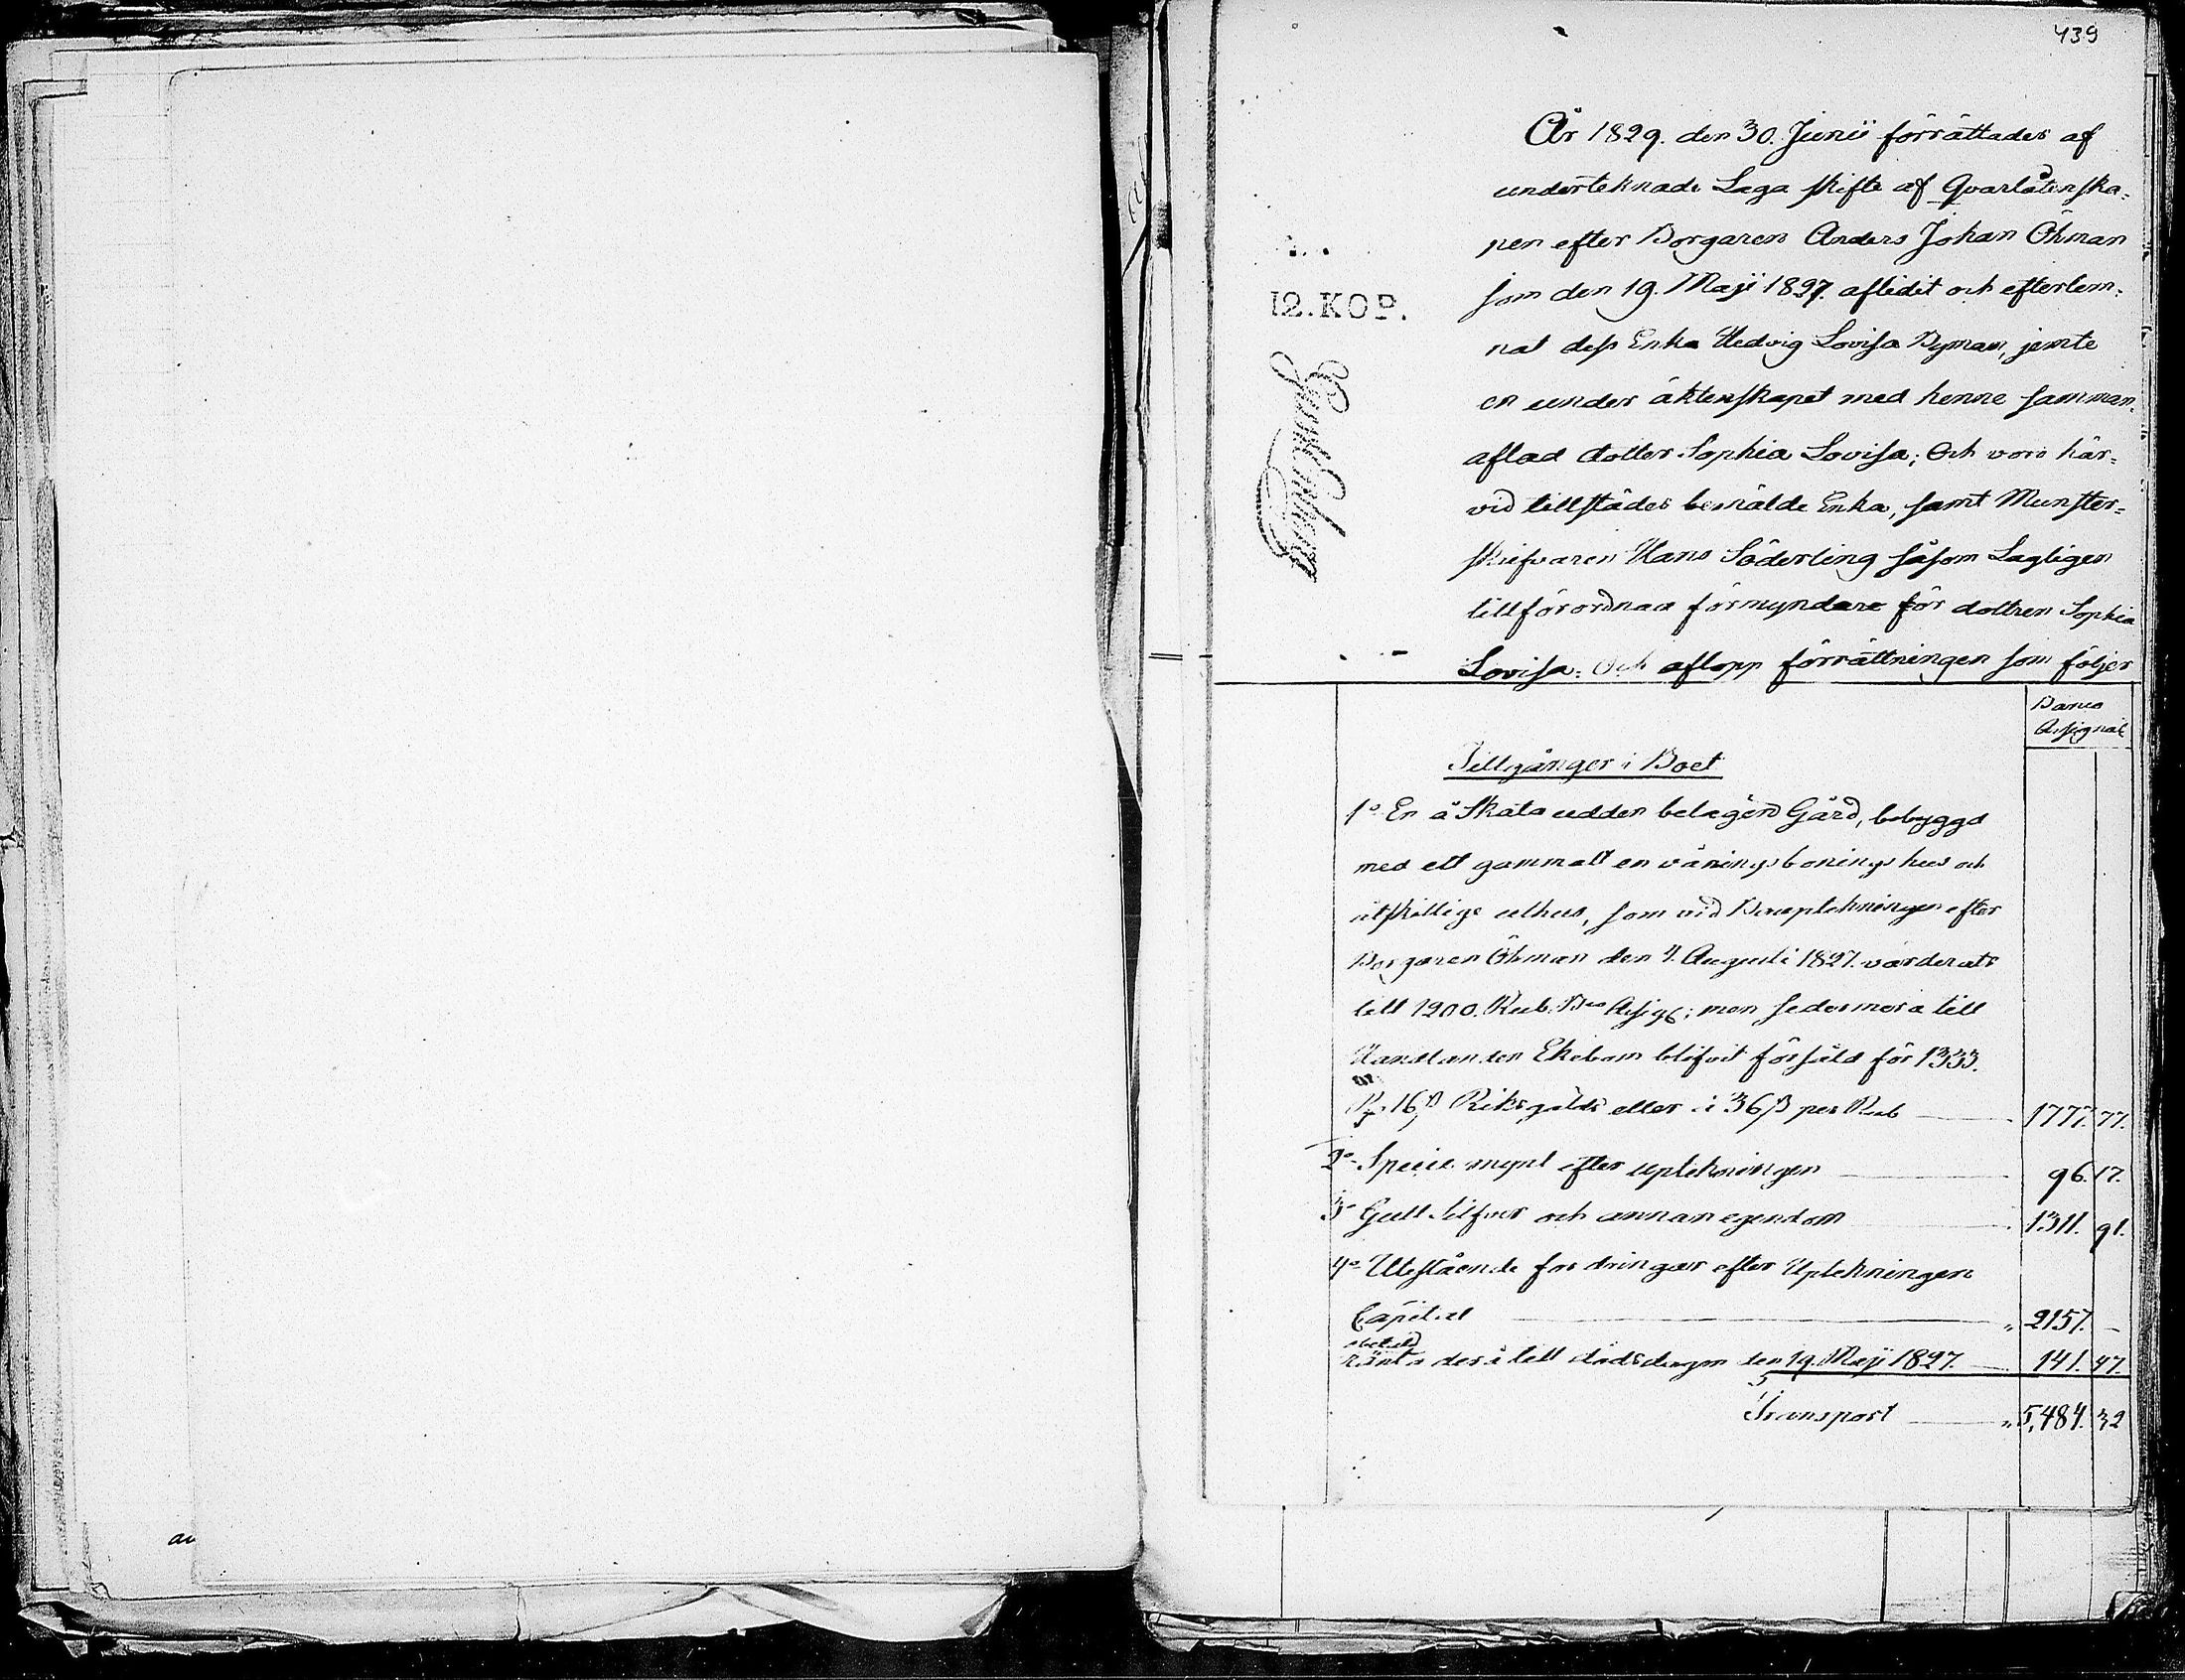 439
År 1829. den 30. Junii förrättades af
underteknade Laga skifte af Qvarlåtenska=
pen efter Borgaren Anders Johan Öhman
som den 19. Maji 1827. aflidit och efterlem=
nat dess Enka Hedvig Lovisa Dyman, jemte
en under äktenskapet med henne samman=
aflad dotter Sophia Lovisa; Och voro här=
vid tillstädes bemälde Enka, samt Munster=
skrifvaren Hans Söderling såsom Lagligen
tillförordnad förmyndare för dottren Sophia
Lovisa: Och aflopp förrättningen som följer
12.KOP.
Banco
Assignat
Tillgånger i Boet
1o En å Skata udden belägen Gård, bebyggd
med ett gammalt en vånings bonings hus och
åtskillige uthus, som vid Bouptekningen efter
Borgaren Öhman den 4. Augusti 1827. värderats
till 1900. Rub. Bco Assigt; men sedermera till
Handlanden Ekebom blifvit försåld för 1333.
Rd 16 ß Riksgälds eller à 36 ß per Rub 1777. 77.
2o Specie mynt efter uptekningen 96. 17.
3o Gull Silfver och annan egendom 1311. 91.
4o Utestående fordringar efter Uptekningen
Capital " 2157. -
obetald
ränta derå till dödsdagen den 19. Maji 1827. 141. 47.
Transport " 5,484. 32